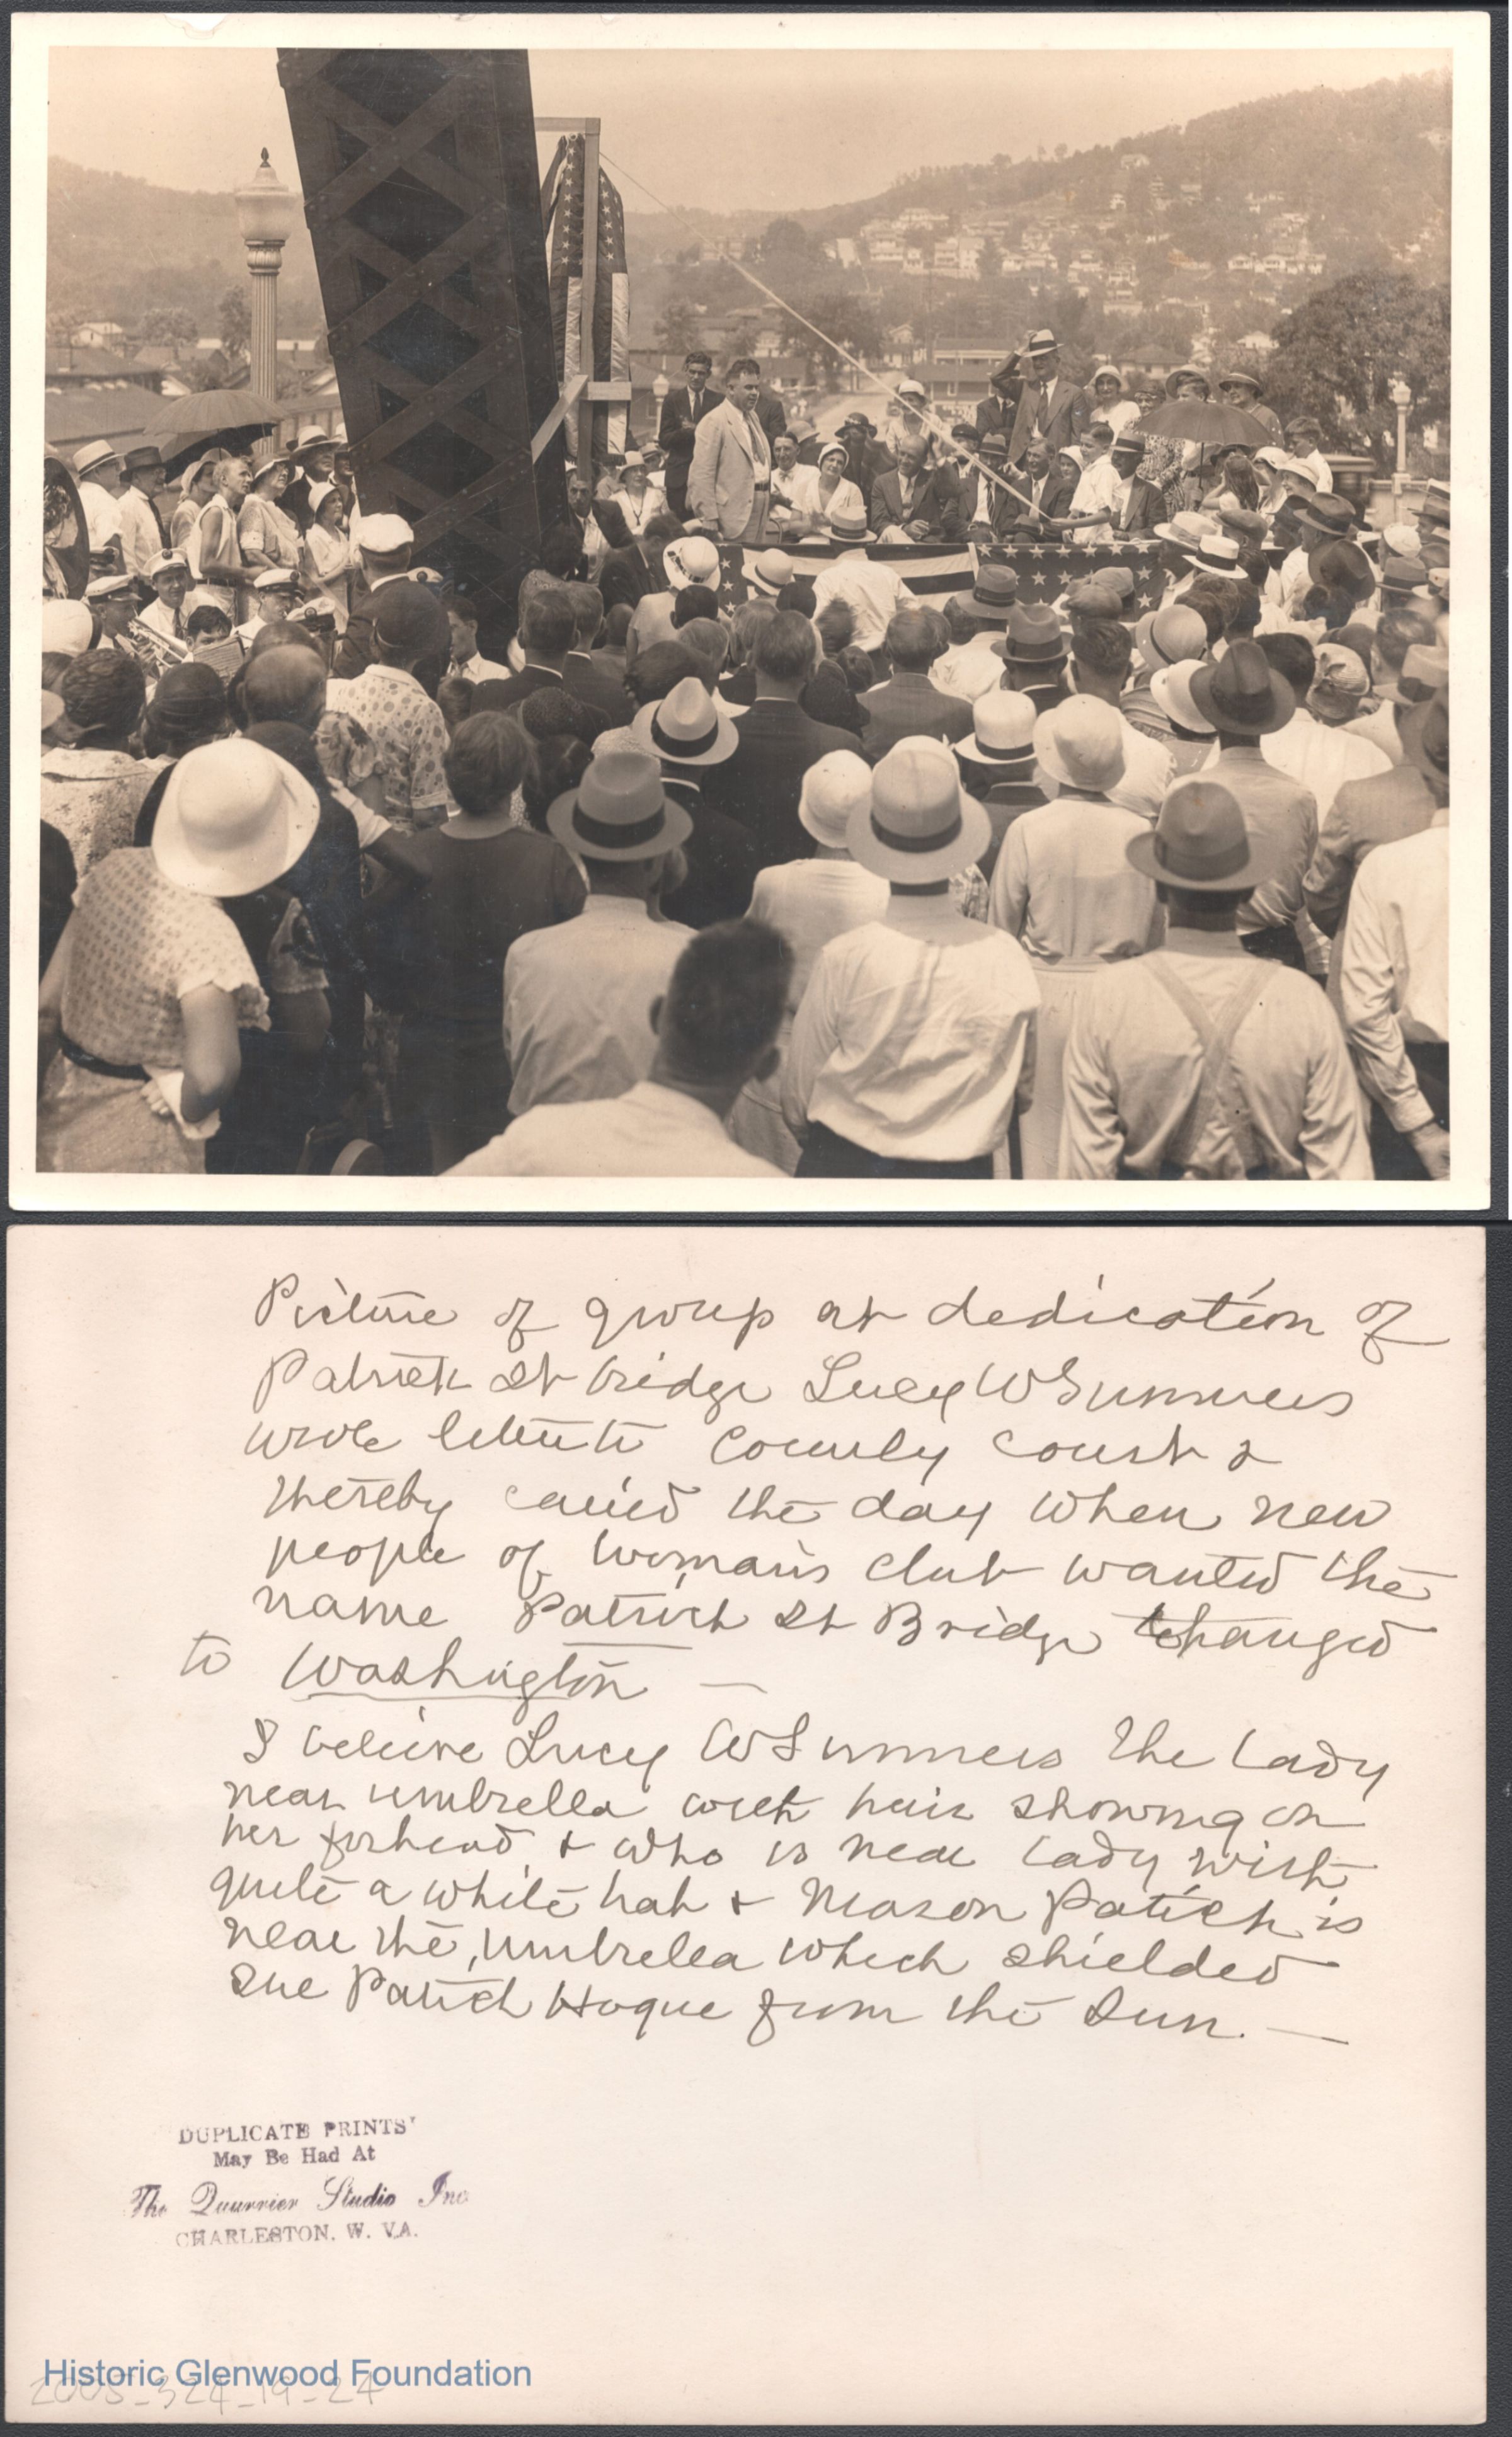 Picture of group at dedication of
Patrick St bridge Lucy W Summers
wrote letter to County Court &
thereby carried the day when new
people of Woman's Club wanted the
name Patrick St Bridge changed
to Washington —
I believe Lucy W Summers the lady
near umbrella with hair showing on
her forhead & who is near lady with
quite a white hat & Mason Patrick is
near the umbrella which shielded
Sue Patrick Hogue from the Sun. —
DUPLICATE PRINTS
May Be Had At
The Quarrier Studio Inc
CHARLESTON. W. VA.
Historic Glenwood Foundation
2005-324-19-24